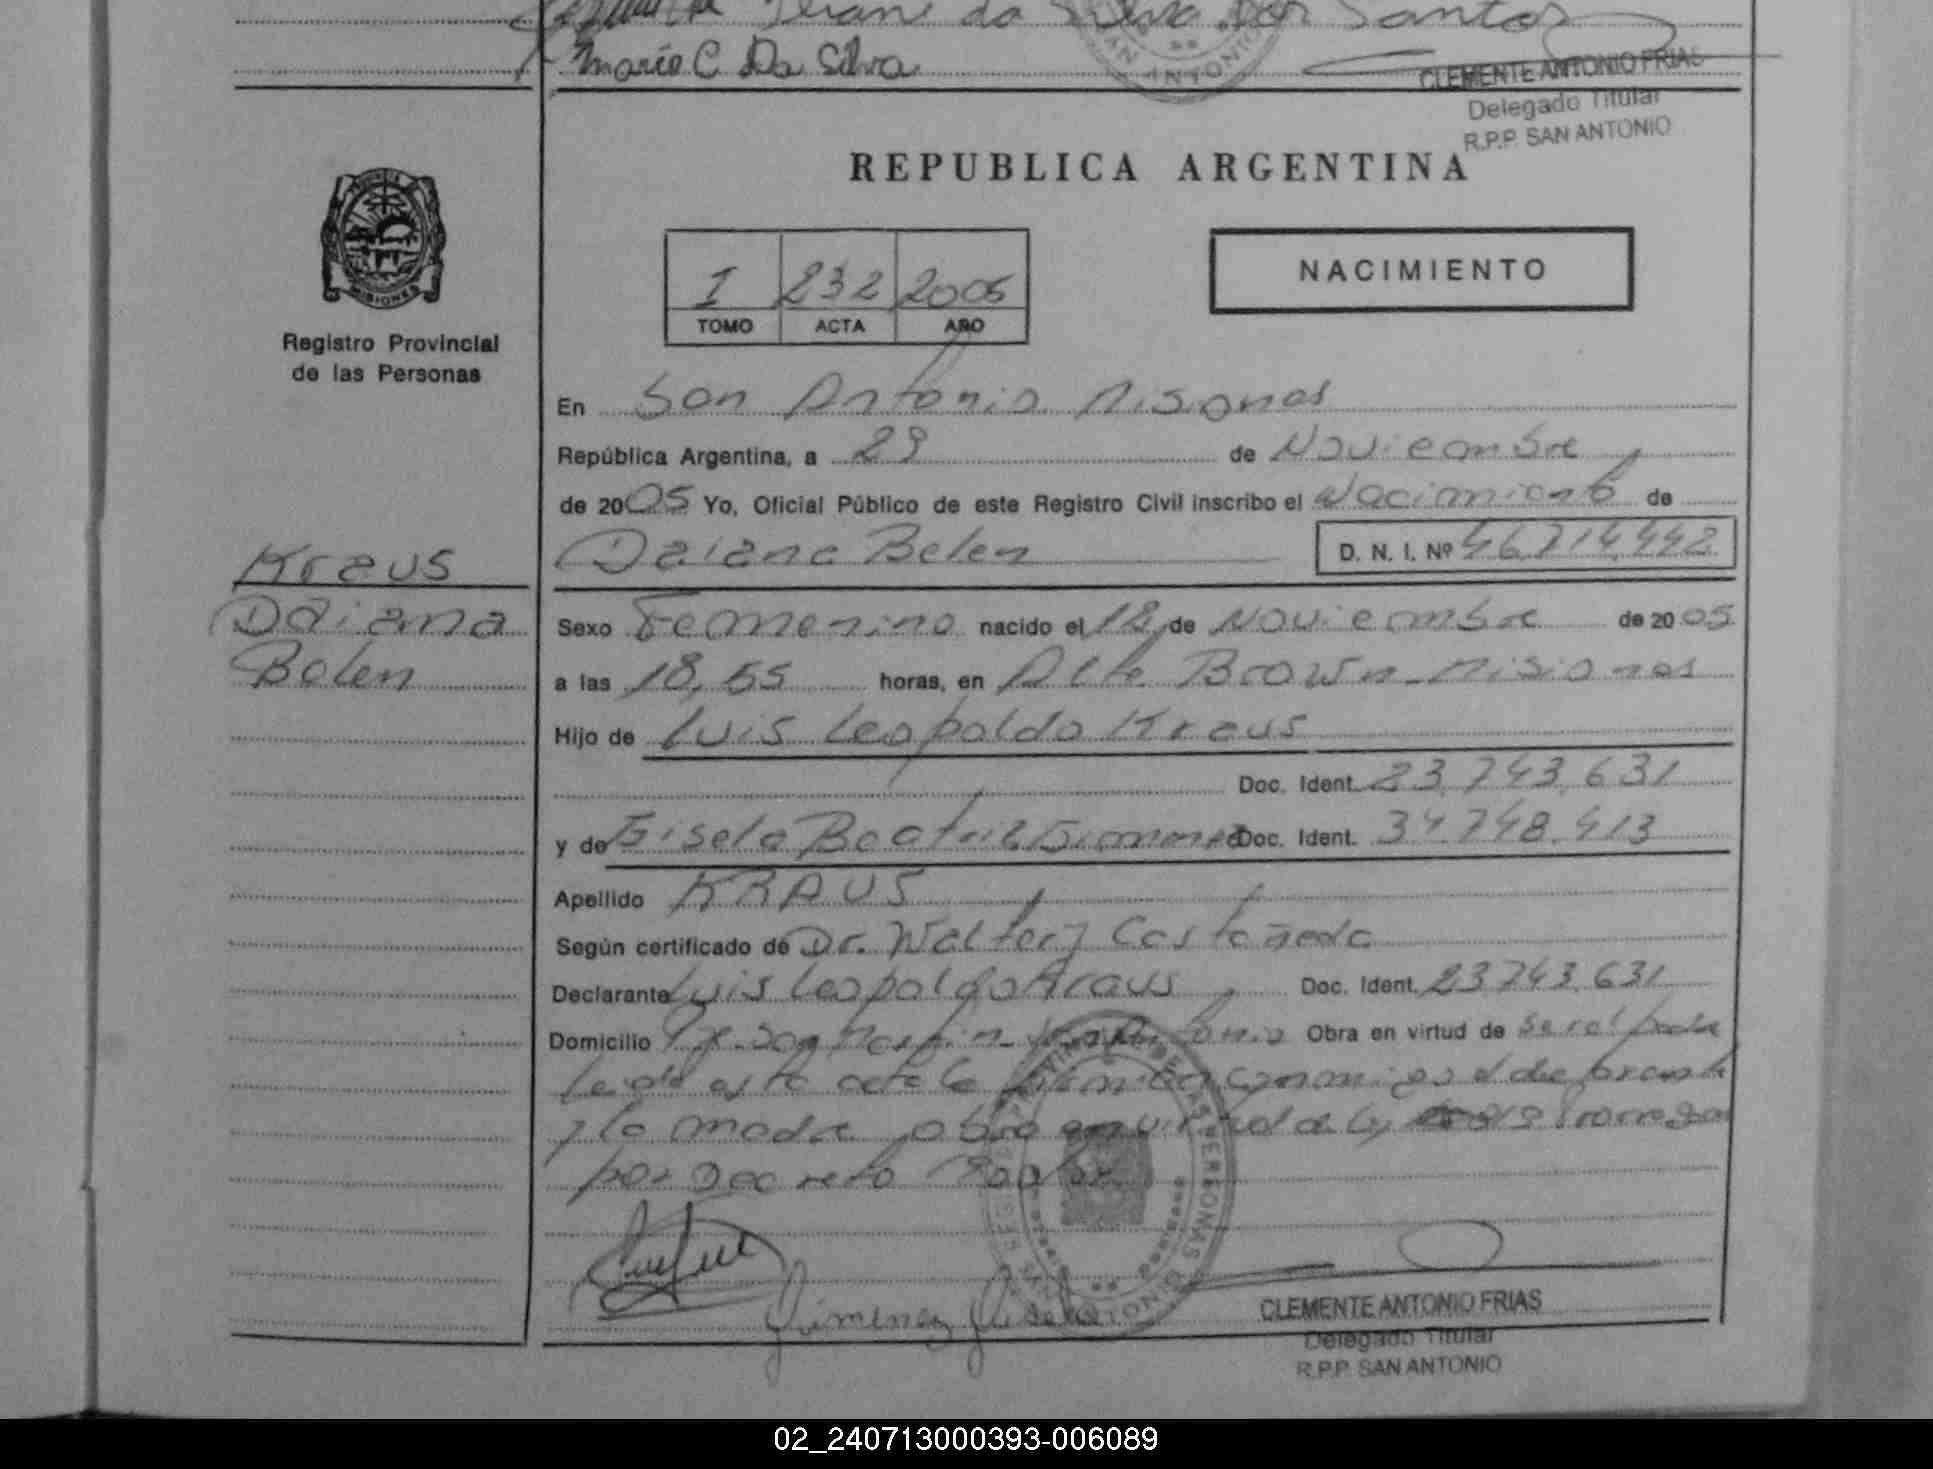 da Silva Dos Santos
Mario C Da Silva
SAN ANTONIO
CLEMENTE ANTONIO FRIAS
Delegado Titular
R.P.P. SAN ANTONIO
REPUBLICA ARGENTINA
MISIONES
Registro Provincial
de las Personas
I 232 2005
TOMO ACTA AÑO
NACIMIENTO
En San Antonio Misiones
República Argentina, a 29 de Noviembre
de 2005 Yo, Oficial Público de este Registro Civil inscribo el Nacimiento de
Daiana Belen D. N. I. Nº 46.714.442
Kraus
Daiana
Belen
Sexo Femenino nacido el 18 de Noviembre de 2005
a las 18,55 horas, en Alte Brown - Misiones
Hijo de Luis Leopoldo Kraus
Doc. Ident. 23.743.631
y de Gisela Beatriz Gimenez Doc. Ident. 34.748.413
Apellido KRAUS
Según certificado de Dr. Walter J Castañeda
Declarante Luis Leopoldo Kraus Doc. Ident. 23.743.631
Domicilio San Martin - San Antonio Obra en virtud de
leida esta acta la conmigo el declarante
y la madre obra en virtud de
por Decreto
Gimenez Gisela
CLEMENTE ANTONIO FRIAS
Delegado Titular
R.P.P. SAN ANTONIO
02_240713000393-006089